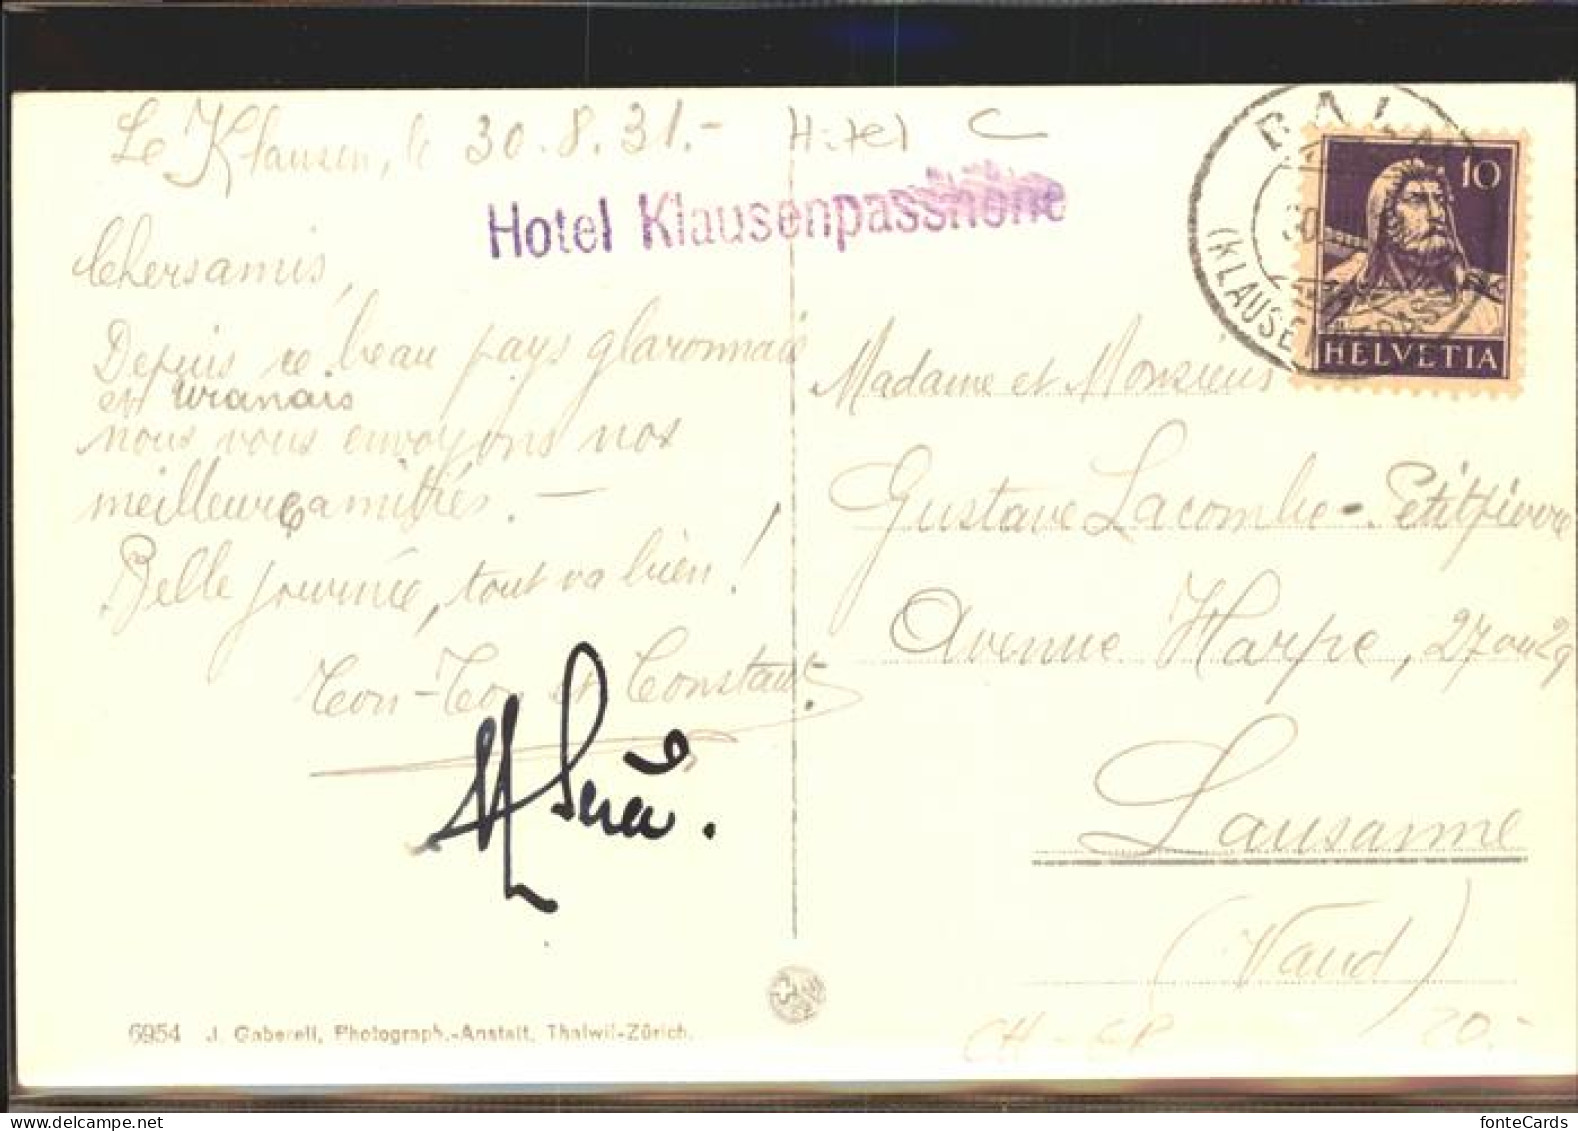 Le Klausen, le 30.8.31.- Hotel C
Hotel Klausenpasshöhe
Chers amis,
Depuis ce beau pays glaronnais
et uranais
nous vous envoyons nos
meilleures amitiés. —
Belle journée, tout va bien!
Ton-Ton et Constant.
BALM
(KLAUSENPASS
10
HELVETIA
Madame et Monsieur
Gustave Lacombe-Petitpierre
Avenue Harpe, 27 ou 29
Lausanne
(Vaud)
6954 J. Gaberell, Photograph.-Anstalt, Thalwil-Zürich.
CH-GP 20.-
fonteCards